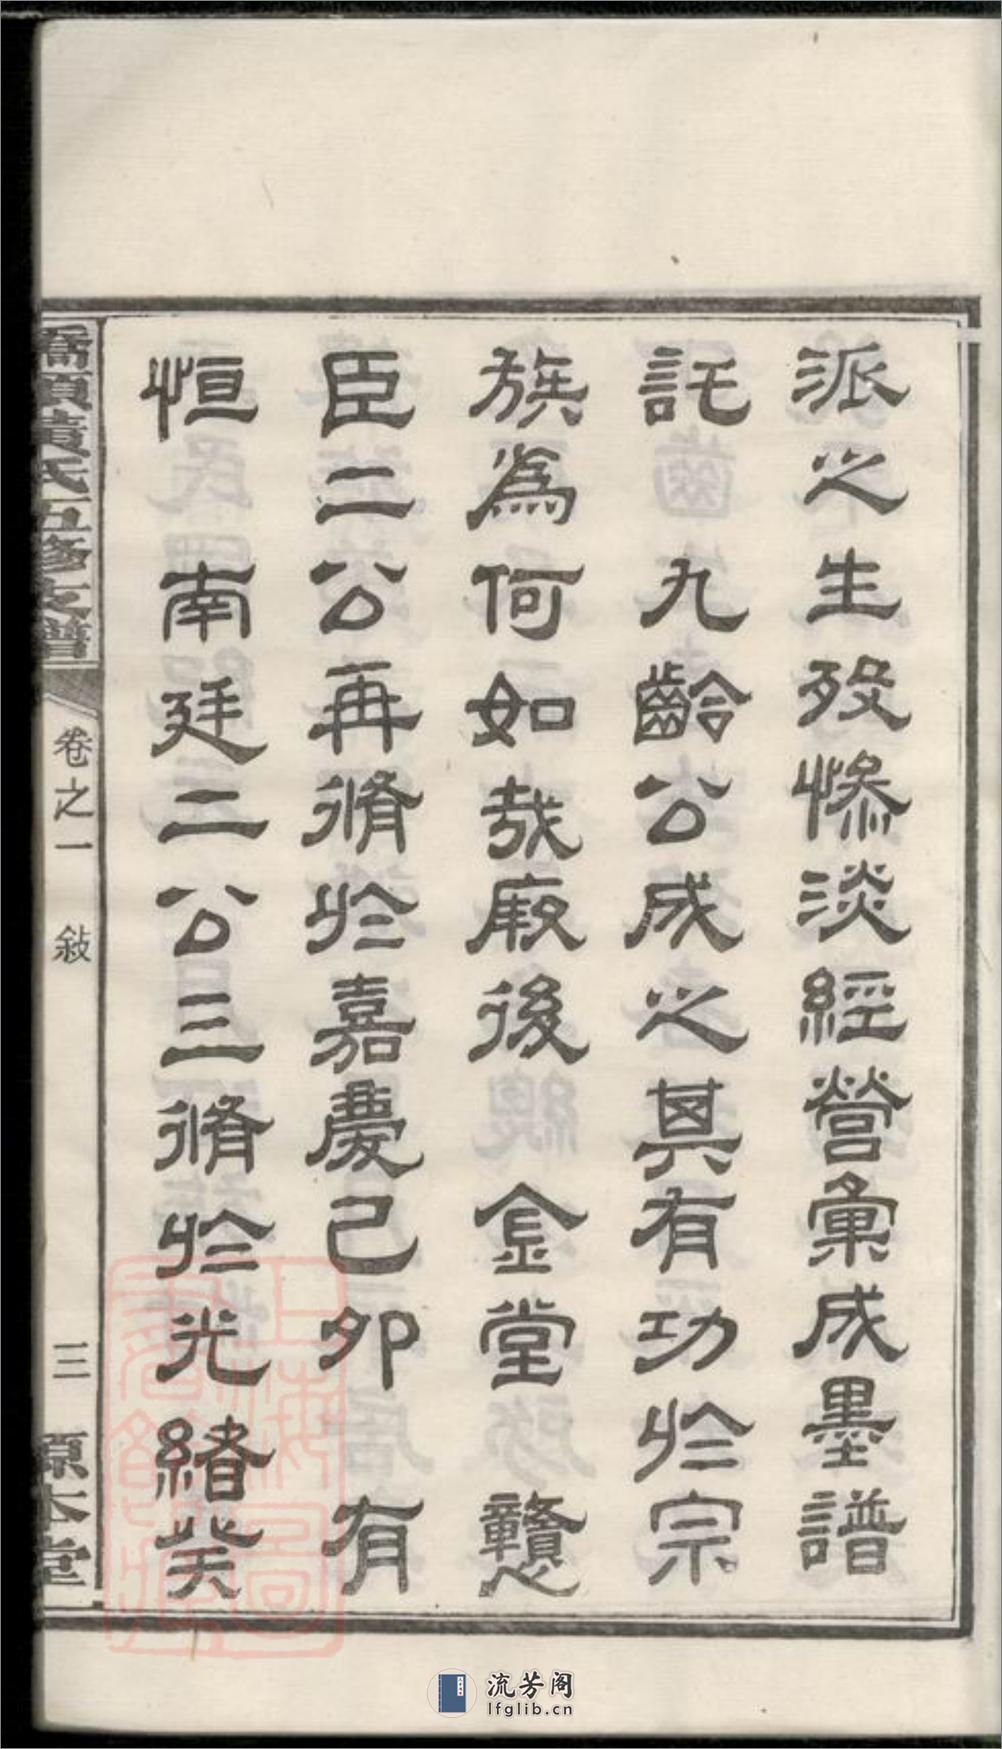 派之生歿慘淡經營彙成墨譜
託 九齡公成之其有功於宗
族爲何如哉厥後 金堂 戇
臣二公再脩於嘉慶己卯 有
恒 南廷二公三脩於光緒癸
橋頭黃氏五修支譜
卷之一 敍
三
源本堂
上海圖書館藏
流芳阁
lfglib.cn